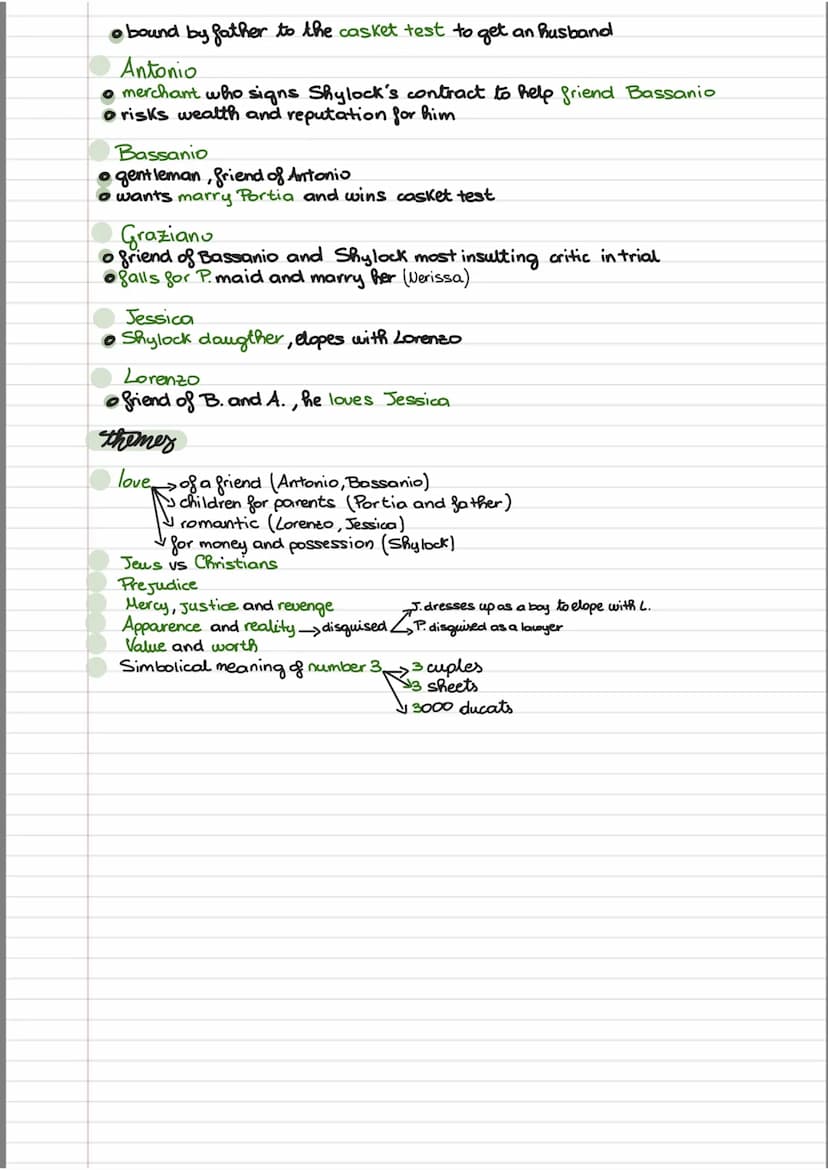 bound by father to the casket test to get an husband
Antonio
merchant who signs Shylock's contract to help friend Bassanio
risks wealth and reputation for him
Bassanio
gentleman, friend of Antonio
wants marry Portia and wins casket test
Graziano
friend of Bassanio and Shylock most insulting critic in trial
falls for P. maid and marry her (Nerissa)
Jessica
Shylock daugther, elopes with Lorenzo
Lorenzo
friend of B. and A., he loves Jessica
themes
love → of a friend (Antonio, Bassanio)
children for parents (Portia and father)
romantic (Lorenzo, Jessica)
for money and possession (Shylock)
Jews vs Christians
Prejudice
Mercy, justice and revenge
J. dresses up as a boy to elope with L.
Apparence and reality → disguised
P. disguised as a lawyer
Value and worth
Simbolical meaning of number 3 → 3 cuples
3 sheets
3000 ducats